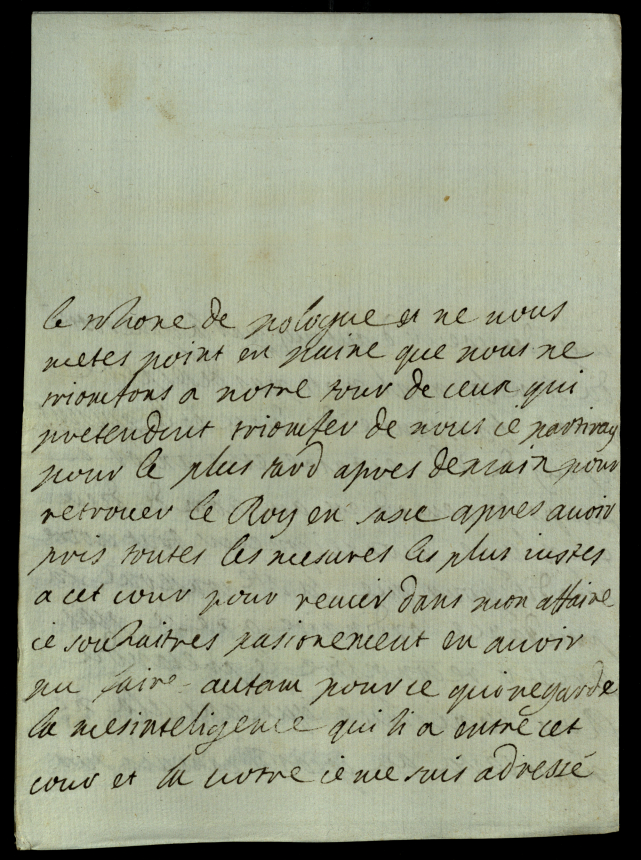 le throne de pologne et ne nous
metes point en paine que nous ne
triomfons a notre tour de ceux qui
pretendent triomfer de nous ie partiray
pour le plus tard apres demain pour
retrouer le Roy en saxe apres auoir
pris toutes les mesures les plus iustes
a cet cour pour reucir dans mon affaire
ie souhaitres pasionement en auoir
pu faire autant pour ce qui regarde
la mesinteligence qui li a entre cet
cour et la notre ie me suis adressé